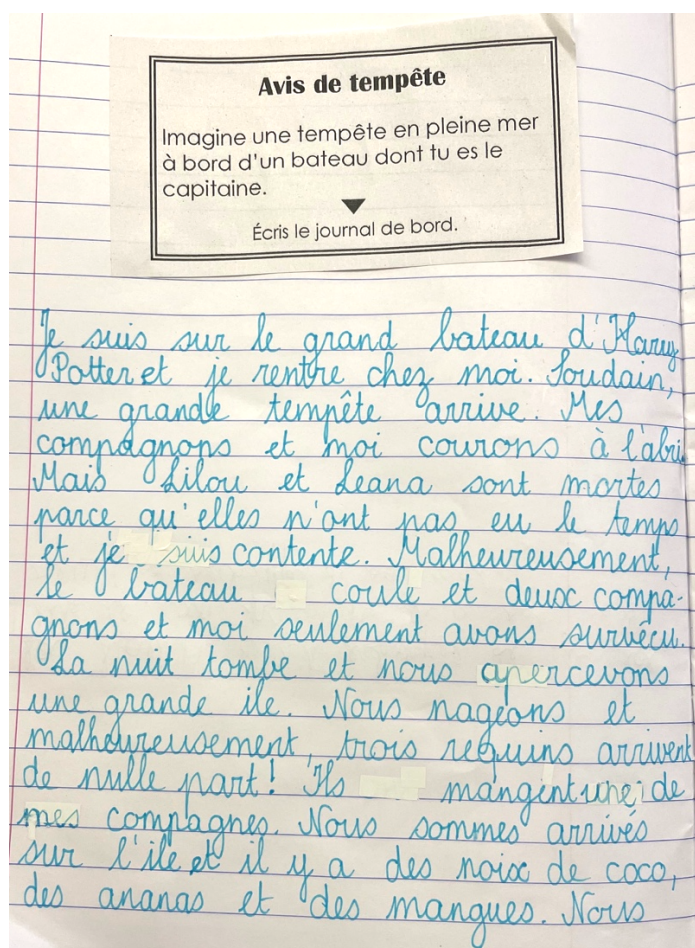 Avis de tempête
Imagine une tempête en pleine mer
à bord d'un bateau dont tu es le
capitaine.
Écris le journal de bord.
Je suis sur le grand bateau d'Harry
Potter et je rentre chez moi. Soudain,
une grande tempête arrive. Mes
compagnons et moi courons à l'abri.
Mais Lilou et Leana sont mortes
parce qu'elles n'ont pas eu le temps
et je suis contente. Malheureusement,
le bateau coule et deux compa-
gnons et moi seulement avons survécu.
La nuit tombe et nous apercevons
une grande ile. Nous nageons et
malheureusement, trois requins arrivent
de nulle part! Ils mangent une de
mes compagnes. Nous sommes arrivés
sur l'ile et il y a des noix de coco,
des ananas et des mangues. Nous